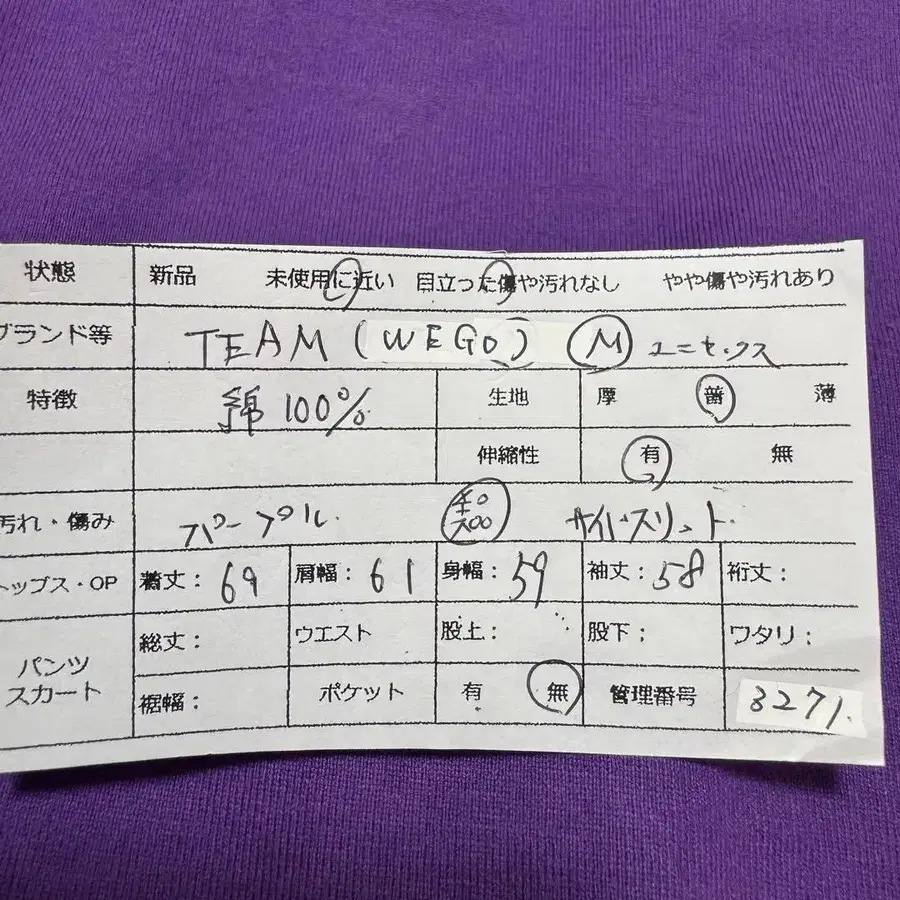 状態 新品 未使用に近い 目立った傷や汚れなし やや傷や汚れあり
ブランド等 TEAM (WEGO) M ユニセックス
特徴 綿 100% 生地 厚 普 薄
伸縮性 有 無
汚れ・傷み パープル. サイドスリット.
トップス・OP 着丈: 69 肩幅: 61 身幅: 59 袖丈: 58 裄丈:
パンツ スカート 総丈: ウエスト 股上: 股下: ワタリ:
裾幅: ポケット 有 無 管理番号 3271.